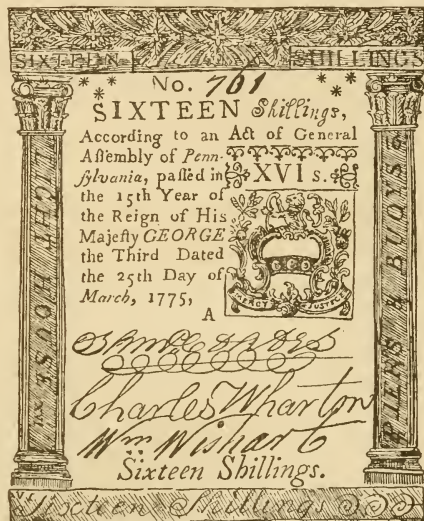 SIXTEEN SHILLINGS
No. 701
SIXTEEN Shillings,
According to an Act of General
Aſſembly of Penn-
ſylvania, paſſed in
the 15th Year of
the Reign of His
Majeſty GEORGE
the Third Dated
the 25th Day of
March, 1775,
A
XVI s.
MERCY JUSTICE
LIGHT HOUSE
PIERS & BUOYS
Charles Wharton
Wm Wishart
Sixteen Shillings.
Sixteen Shillings